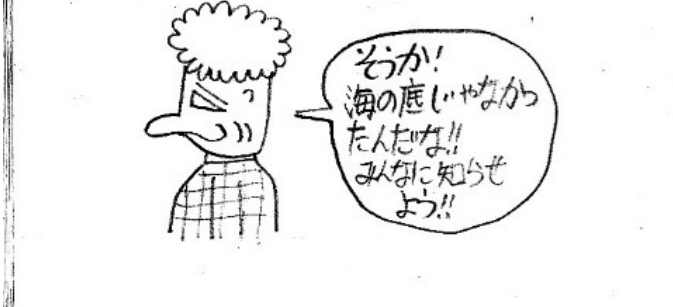 そうか!
海の底じゃなかっ
たんだな!!
みんなに知らせ
よう!!